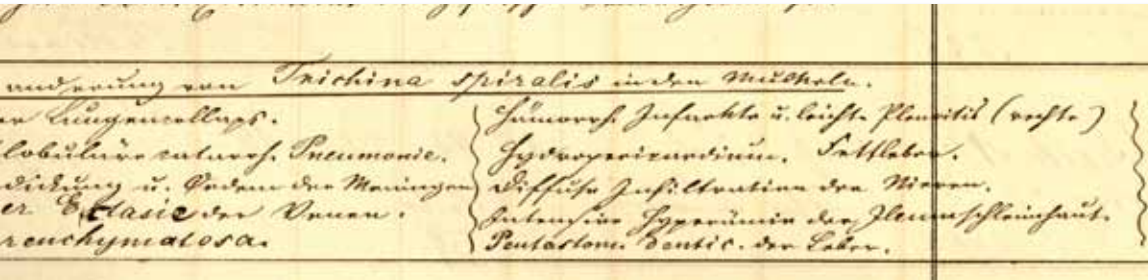 anderung von Trichina spiralis in den Muskeln.
er Lungencollaps.
lobuläre catarrh. Pneumonie.
dickung u. Oedem der Meningen
er Ectasie der Venen.
renchymatosa.
Hämorrh. Infarkte u. leichte Pleuritis (rechts)
Hydropericardium. Fettleber.
Diffuse Infiltration der Nieren.
Intensive Hyperämie der Ileumschleimhaut.
Pentastom. dentic. der Leber.